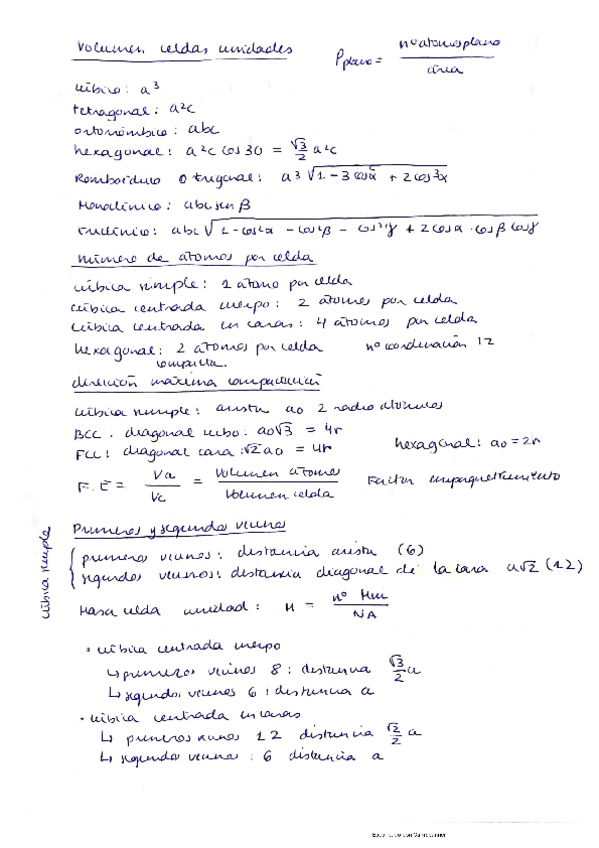 Volumen celdas unidades
ρplano = nº átomos plano / área
cúbico: a³
tetragonal: a²c
ortorrómbico: abc
hexagonal: a²c cos 30 = √3/2 a²c
Romboédrico o trigonal: a³ √(1 - 3 cos²α + 2 cos³α)
Monoclínico: abc sen β
triclínico: abc √(1 - cos²α - cos²β - cos²γ + 2 cos α · cos β cos γ)
número de átomos por celda
cúbica simple: 1 átomo por celda
cúbica centrada cuerpo: 2 átomos por celda
cúbica centrada en caras: 4 átomos por celda
hexagonal: 2 átomos por celda nº coordinación 12
compacta.
dirección máxima compactación
cúbica simple: arista a0 2 radio atómicos
BCC. diagonal cubo: a0√3 = 4r
FCC: diagonal cara: √2 a0 = 4r hexagonal: a0 = 2r
F.E = Va / Vc = Volumen átomos / Volumen celda Factor empaquetamiento
Primeros y segundos vecinos
cúbica simple
primeros vecinos: distancia arista (6)
segundos vecinos: distancia diagonal de la cara a√2 (12)
Masa celda unidad: M = nº Mm / NA
• cúbica centrada cuerpo
↳ primeros vecinos 8: distancia √3/2 a
↳ segundos vecinos 6: distancia a
• cúbica centrada en caras
↳ primeros vecinos 12 distancia √2/2 a
↳ segundos vecinos: 6 distancia a